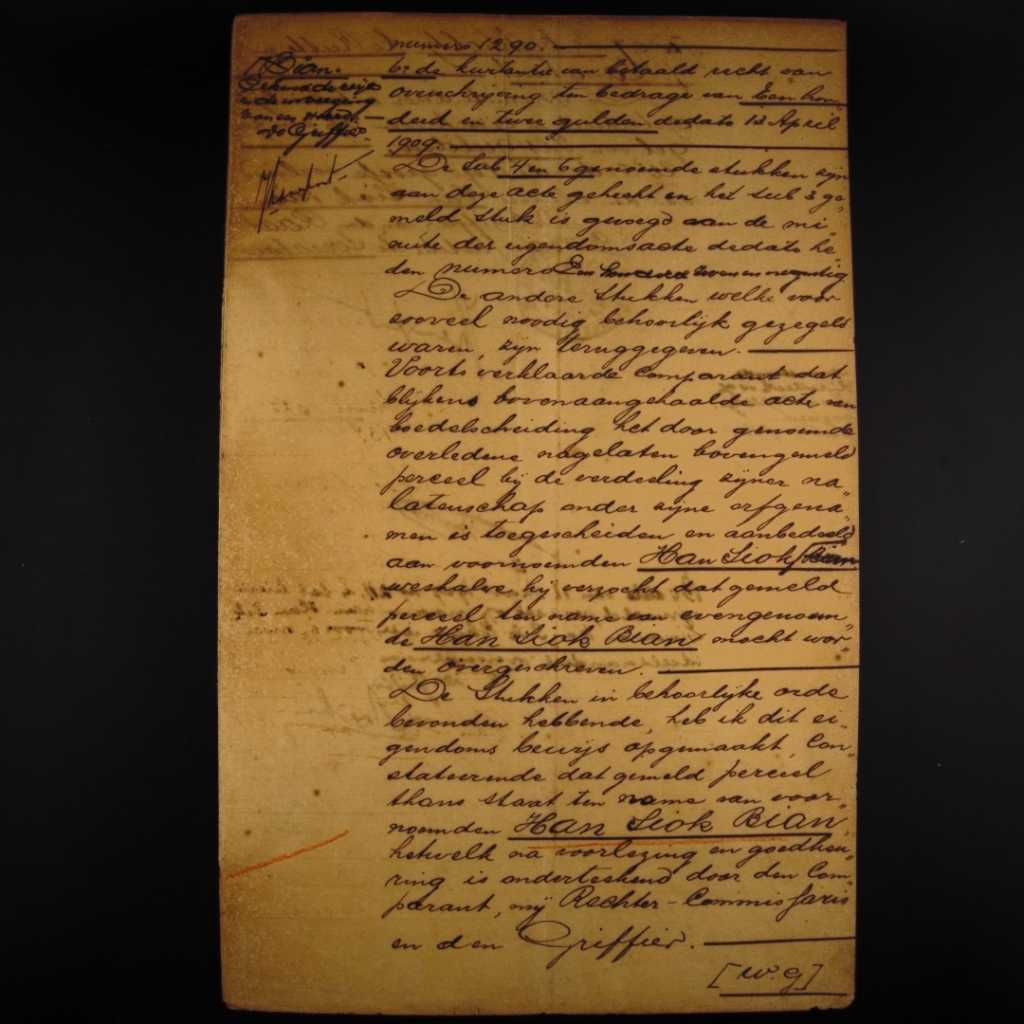 numero 1290.
[Bian.
Gekend de wijk
van een woord.
De Griffier
6e de kwitantie van betaald recht van
overschrijving ten bedrage van Een hon„
derd en twee gulden dedato 13 April
1909.
De Sub 4 en 6 genoemde stukken zijn
aan deze acte gehecht en het sub 3 ge„
meld stuk is gevoegd aan de mi„
nute der eigendomsacte dedato he„
den numero Een honderd zeven en negentig
De andere stukken welke voor
zooveel noodig behoorlijk gezegeld
waren, zijn teruggegeven.
Voorts verklaarde comparant dat
blijkens bovenaangehaalde acte van
boedelscheiding het door genoemde
overledene nagelaten bovengemeld
perceel bij de verdeeling zijner na„
latenschap onder zijne erfgena„
men is toegescheiden en aanbedeeld
aan voornoemden Han Siok [Bian
weshalve hij verzocht dat gemeld
perceel ten name van evengenoem„
de Han Siok Bian mocht wor„
den overgeschreven.
De Stukken in behoorlijke orde
bevonden hebbende, heb ik dit ei„
gendoms bewijs opgemaakt, Con„
stateerende dat gemeld perceel
thans staat ten name van voor„
noemden Han Siok Bian,
hetwelk na voorlezing en goedkeu„
ring is onderteekend door den Com„
parant, mij Rechter-Commissaris
en den Griffier.
[W.G]